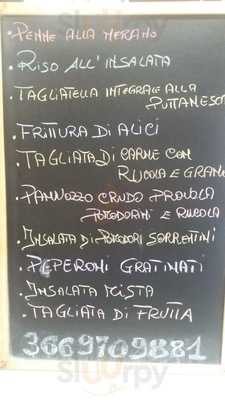 • PENNE ALLA MERANO
• RISO ALL'INSALATA
• TAGLIATELLA INTEGRALE ALLA
PUTTANESCA
• FRITTURA DI ALICI
• TAGLIATA DI CARNE CON
RUCOLA E GRANA
• PANNOZZO CRUDO PROVOLA
POMODORINI E RUCOLA
• INSALATA DI POMODORI SORRENTINI
• PEPERONI GRATINATI
• INSALATA MISTA
• TAGLIATA DI FRUTTA
3669709881
Sluurpy